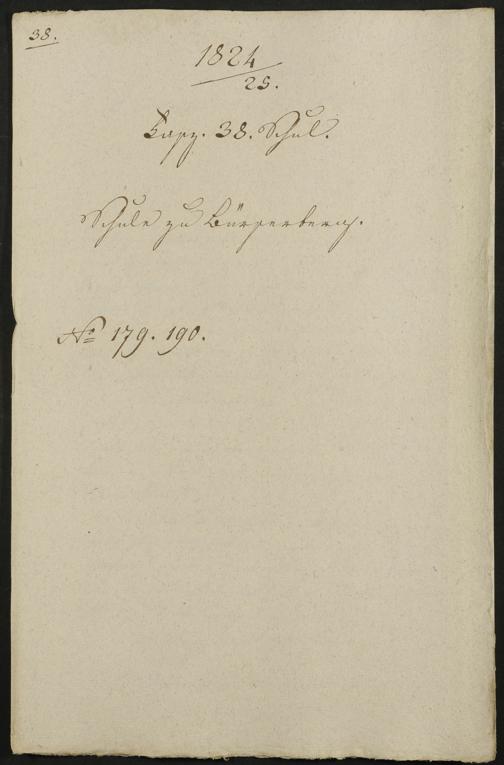 38.
1824
25.
Fasz. 38. Schul.
Schule zu Bürserberg.
No 179. 190.